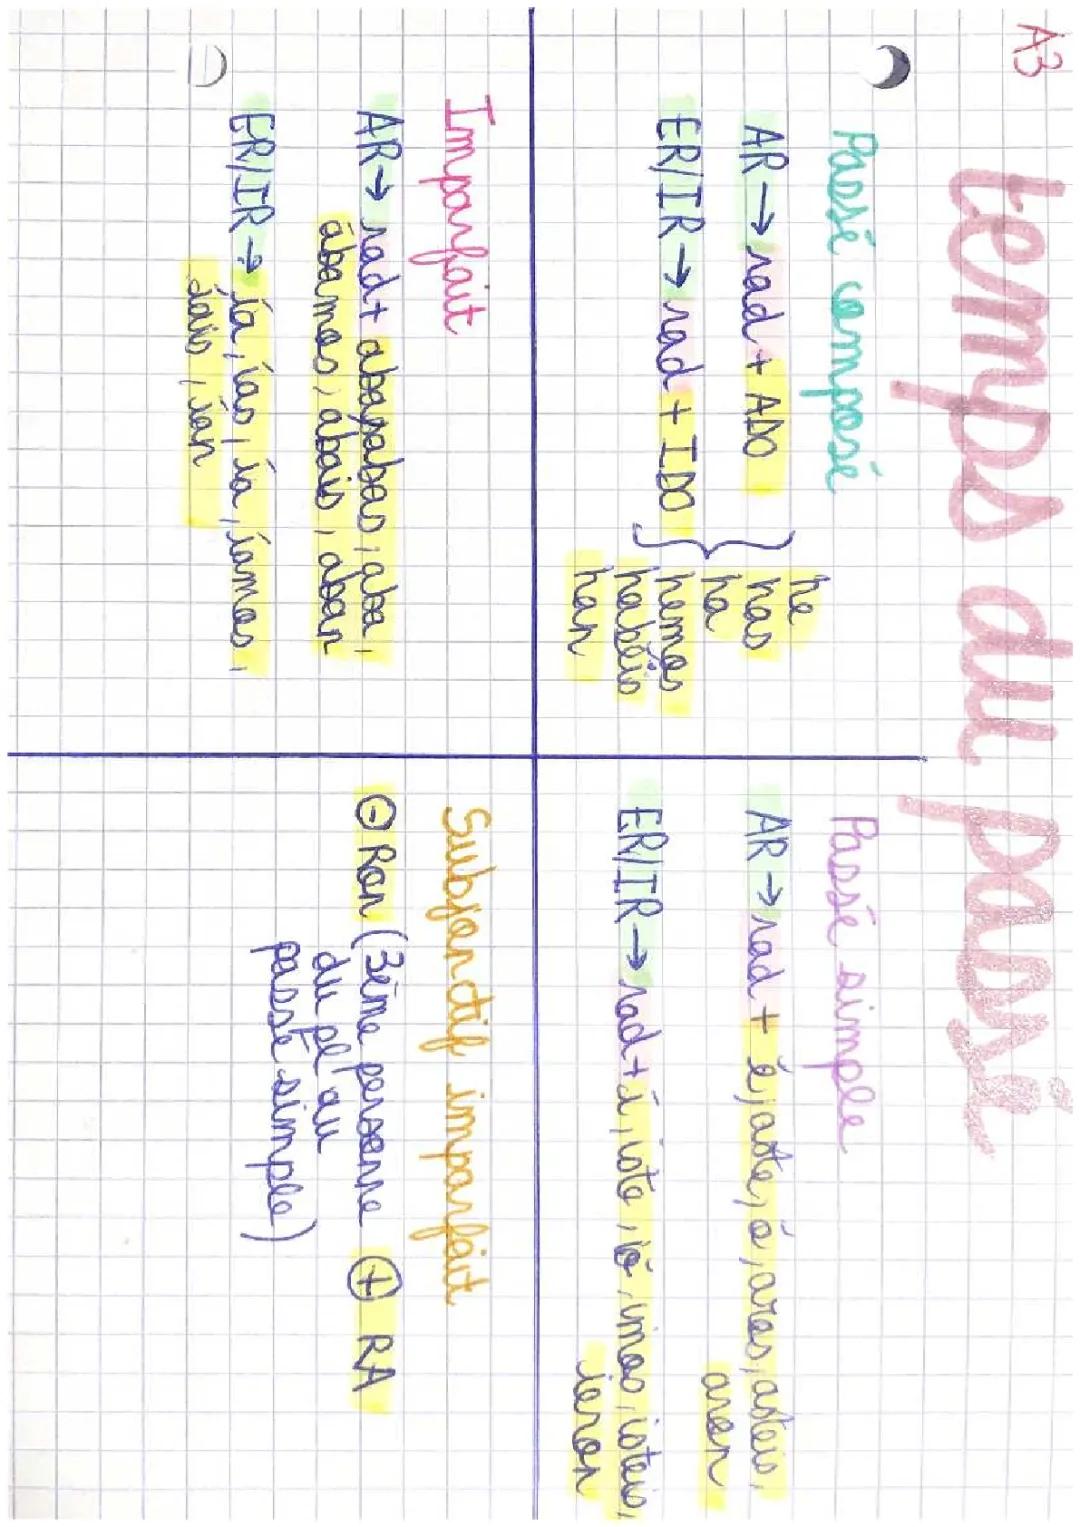 A3
temps du passé
Passé composé
AR → rad + ADO
ER/IR → rad + IDO
he
has
ha
hemos
habéis
han
Passé simple
AR → rad + é, aste, ó, aros, asteis,
aron
ER/IR → rad + í, iste, ió, imos, isteis,
ieron
Imparfait
AR → rad + aba, abas, aba,
ábamos, abais, aban
ER/IR → ía, ías, ía, íamos,
íais, ían
Subjonctif imparfait
⊖ Ron (3ème personne ⊕ RA
du pl au
passé simple)